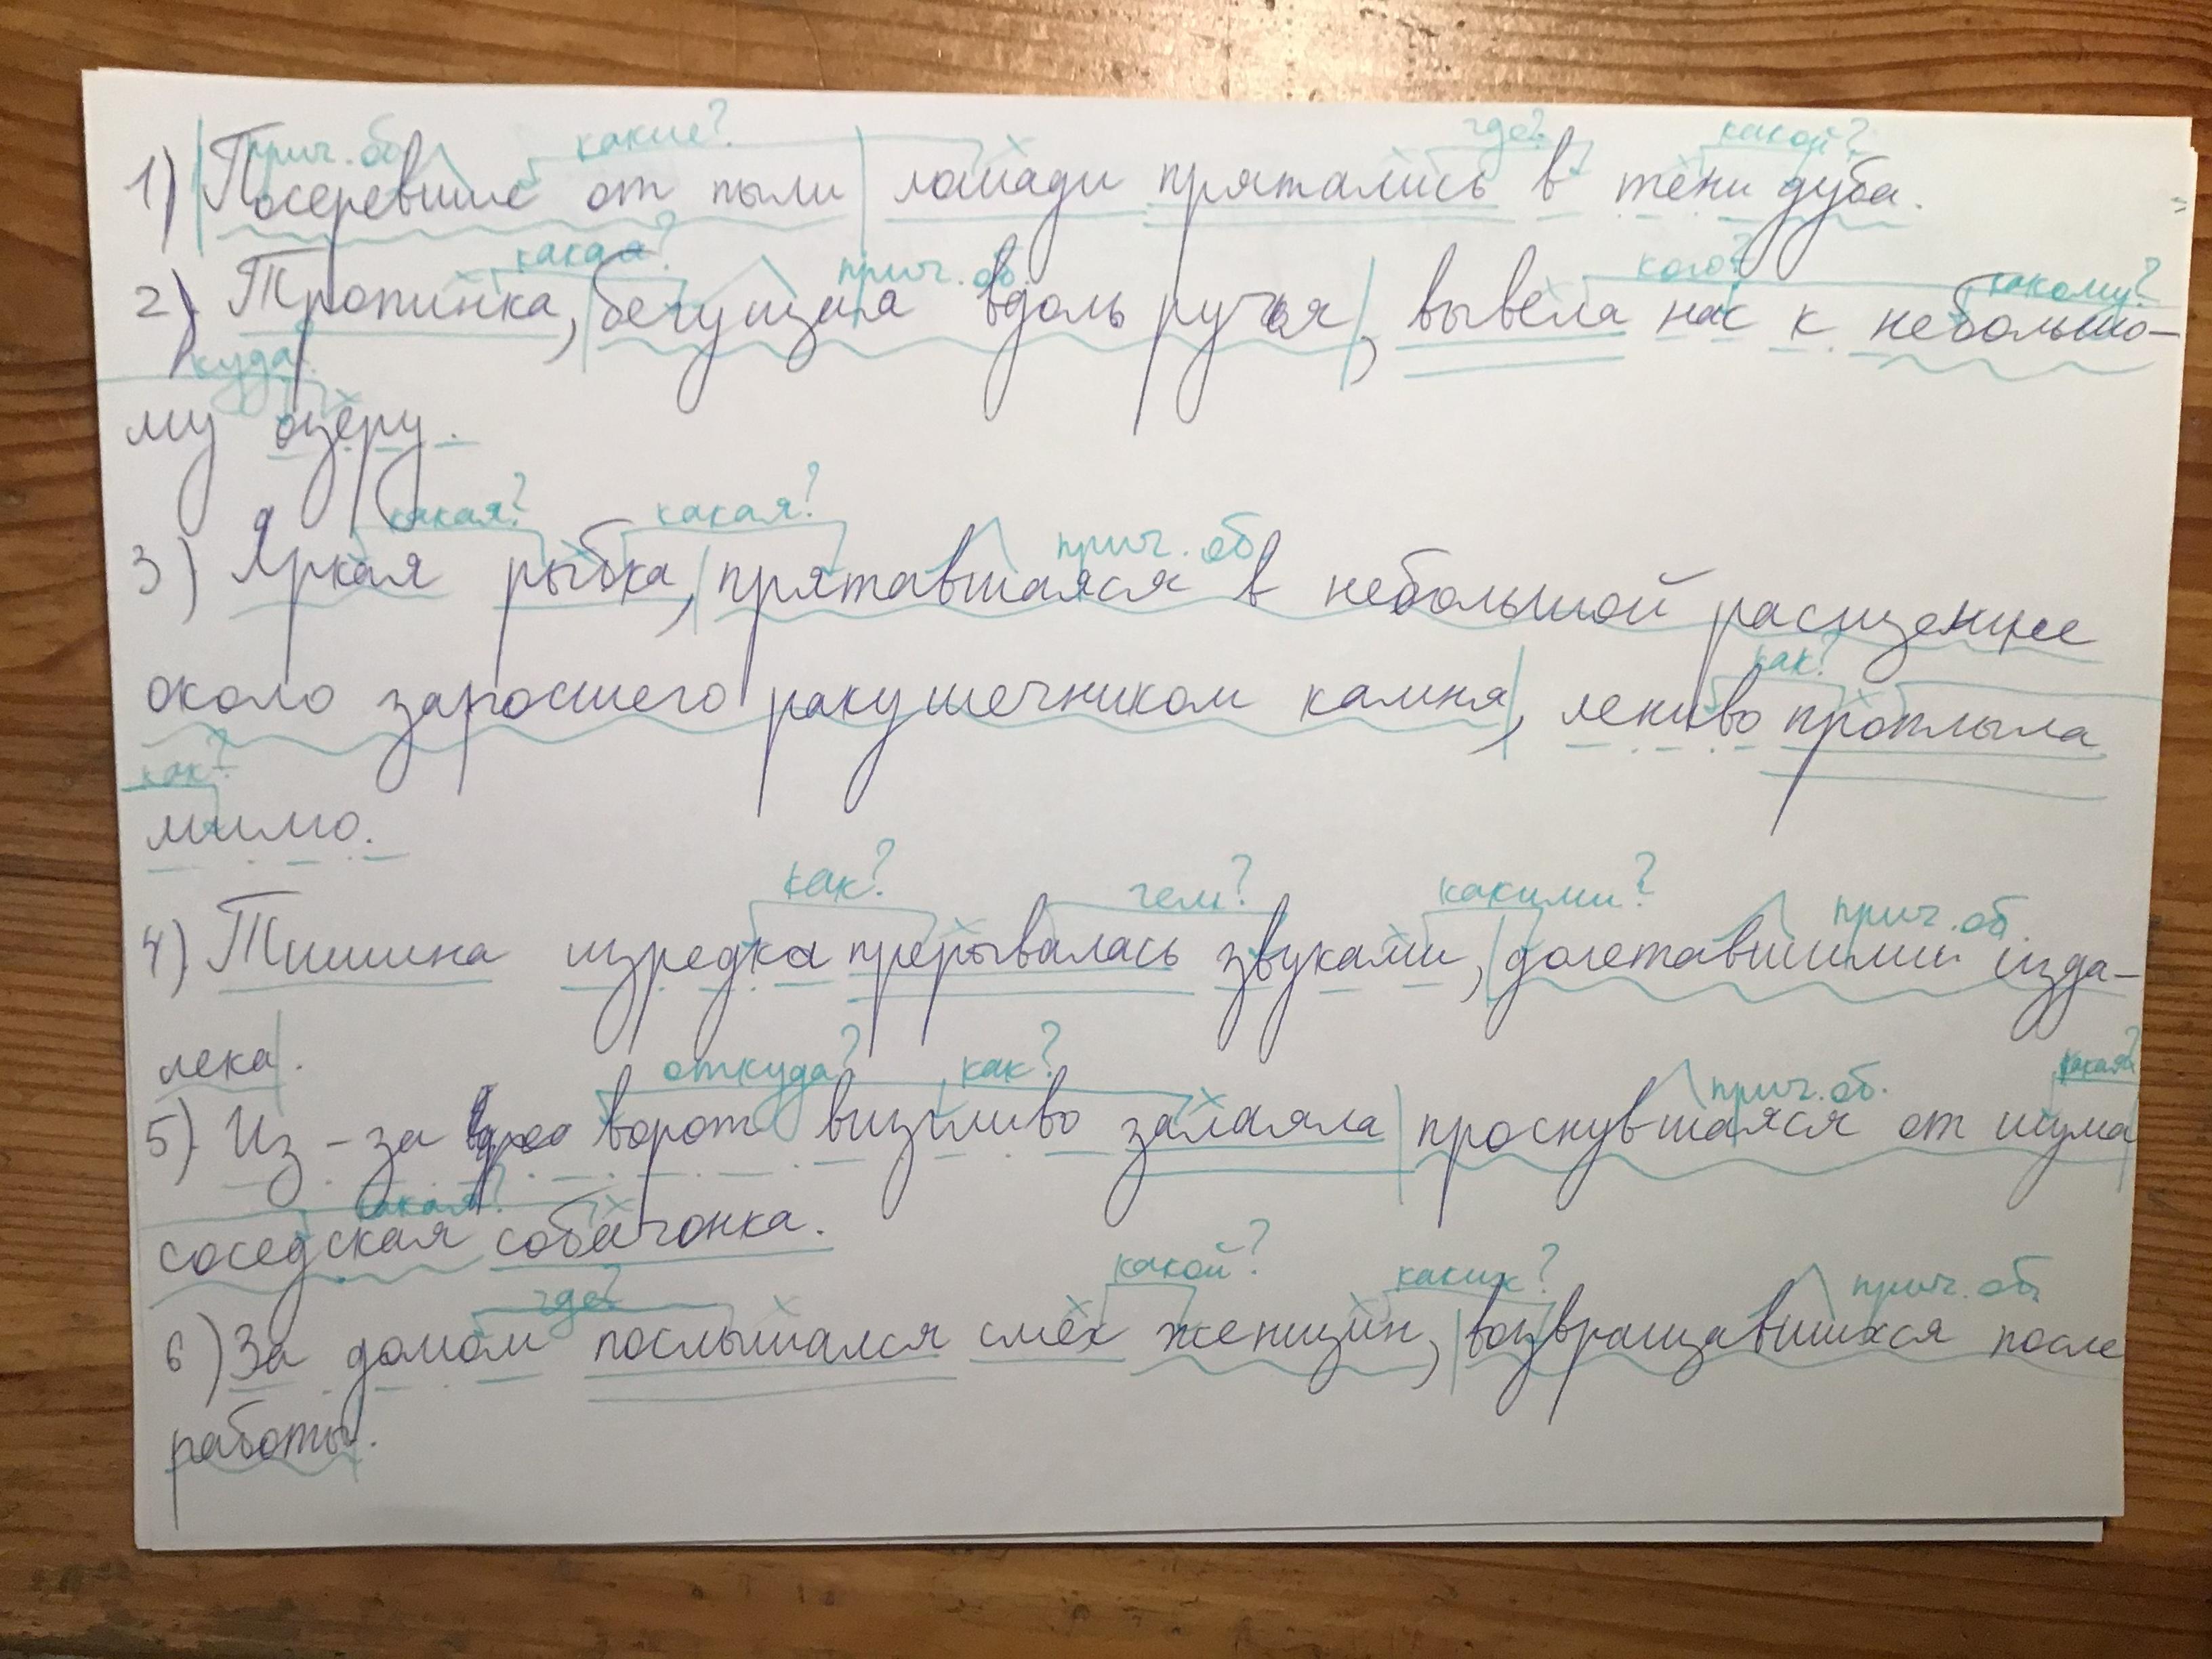 прич. об. какие? где? какой?
1) Посеревшие от пыли лошади прятались в тени дуба.
какая? прич. об. кого? какому?
2) Тропинка, бегущая вдоль ручья, вывела нас к небольшо-
куда?
му озеру.
какая? какая? прич. об.
3) Яркая рыбка, прятавшаяся в небольшой расщелине
как?
около заросшего ракушечником камня, лениво проплыла
как?
мимо.
как? чем? какими? прич. об.
4) Тишина изредка прерывалась звуками, долетавшими изда-
лека.
откуда? как? прич. об. какая?
5) Из-за ворот визгливо залаяла проснувшаяся от шума
какая?
соседская собачонка.
где? какой? каких? прич. об.
6) За домом послышался смех женщин, возвращавшихся после
работы.